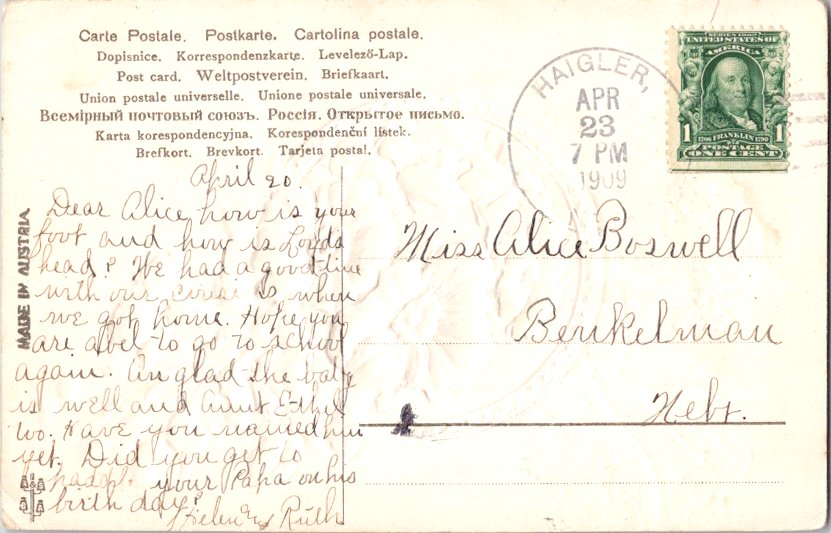 Carte Postale. Postkarte. Cartolina postale.
Dopisnice. Korrespondenzkarte. Levelező-Lap.
Post card. Weltpostverein. Briefkaart.
Union postale universelle. Unione postale universale.
Всемірный почтовый союзъ. Россія. Открытое письмо.
Karta korespondencyjna. Korespondenční lístek.
Brefkort. Brevkort. Tarjeta postal.
SERIES 1902
UNITED STATES OF
AMERICA
1 1
1706 FRANKLIN 1790
POSTAGE
ONE CENT
HAIGLER,
APR
23
7 PM
1909
MADE IN AUSTRIA
April 20.
Dear Alice how is your
foot and how is Loyds
head? We had a good time
with our when
we got home. Hope you
are abel to go to school
again. Am glad the baby
is well and aunt Ethel
too. Have you named him
yet. Did you get to
your Papa on his
birth day?
Helen and Ruth
Miss Alice Boswell
Benkelman
Nebr.